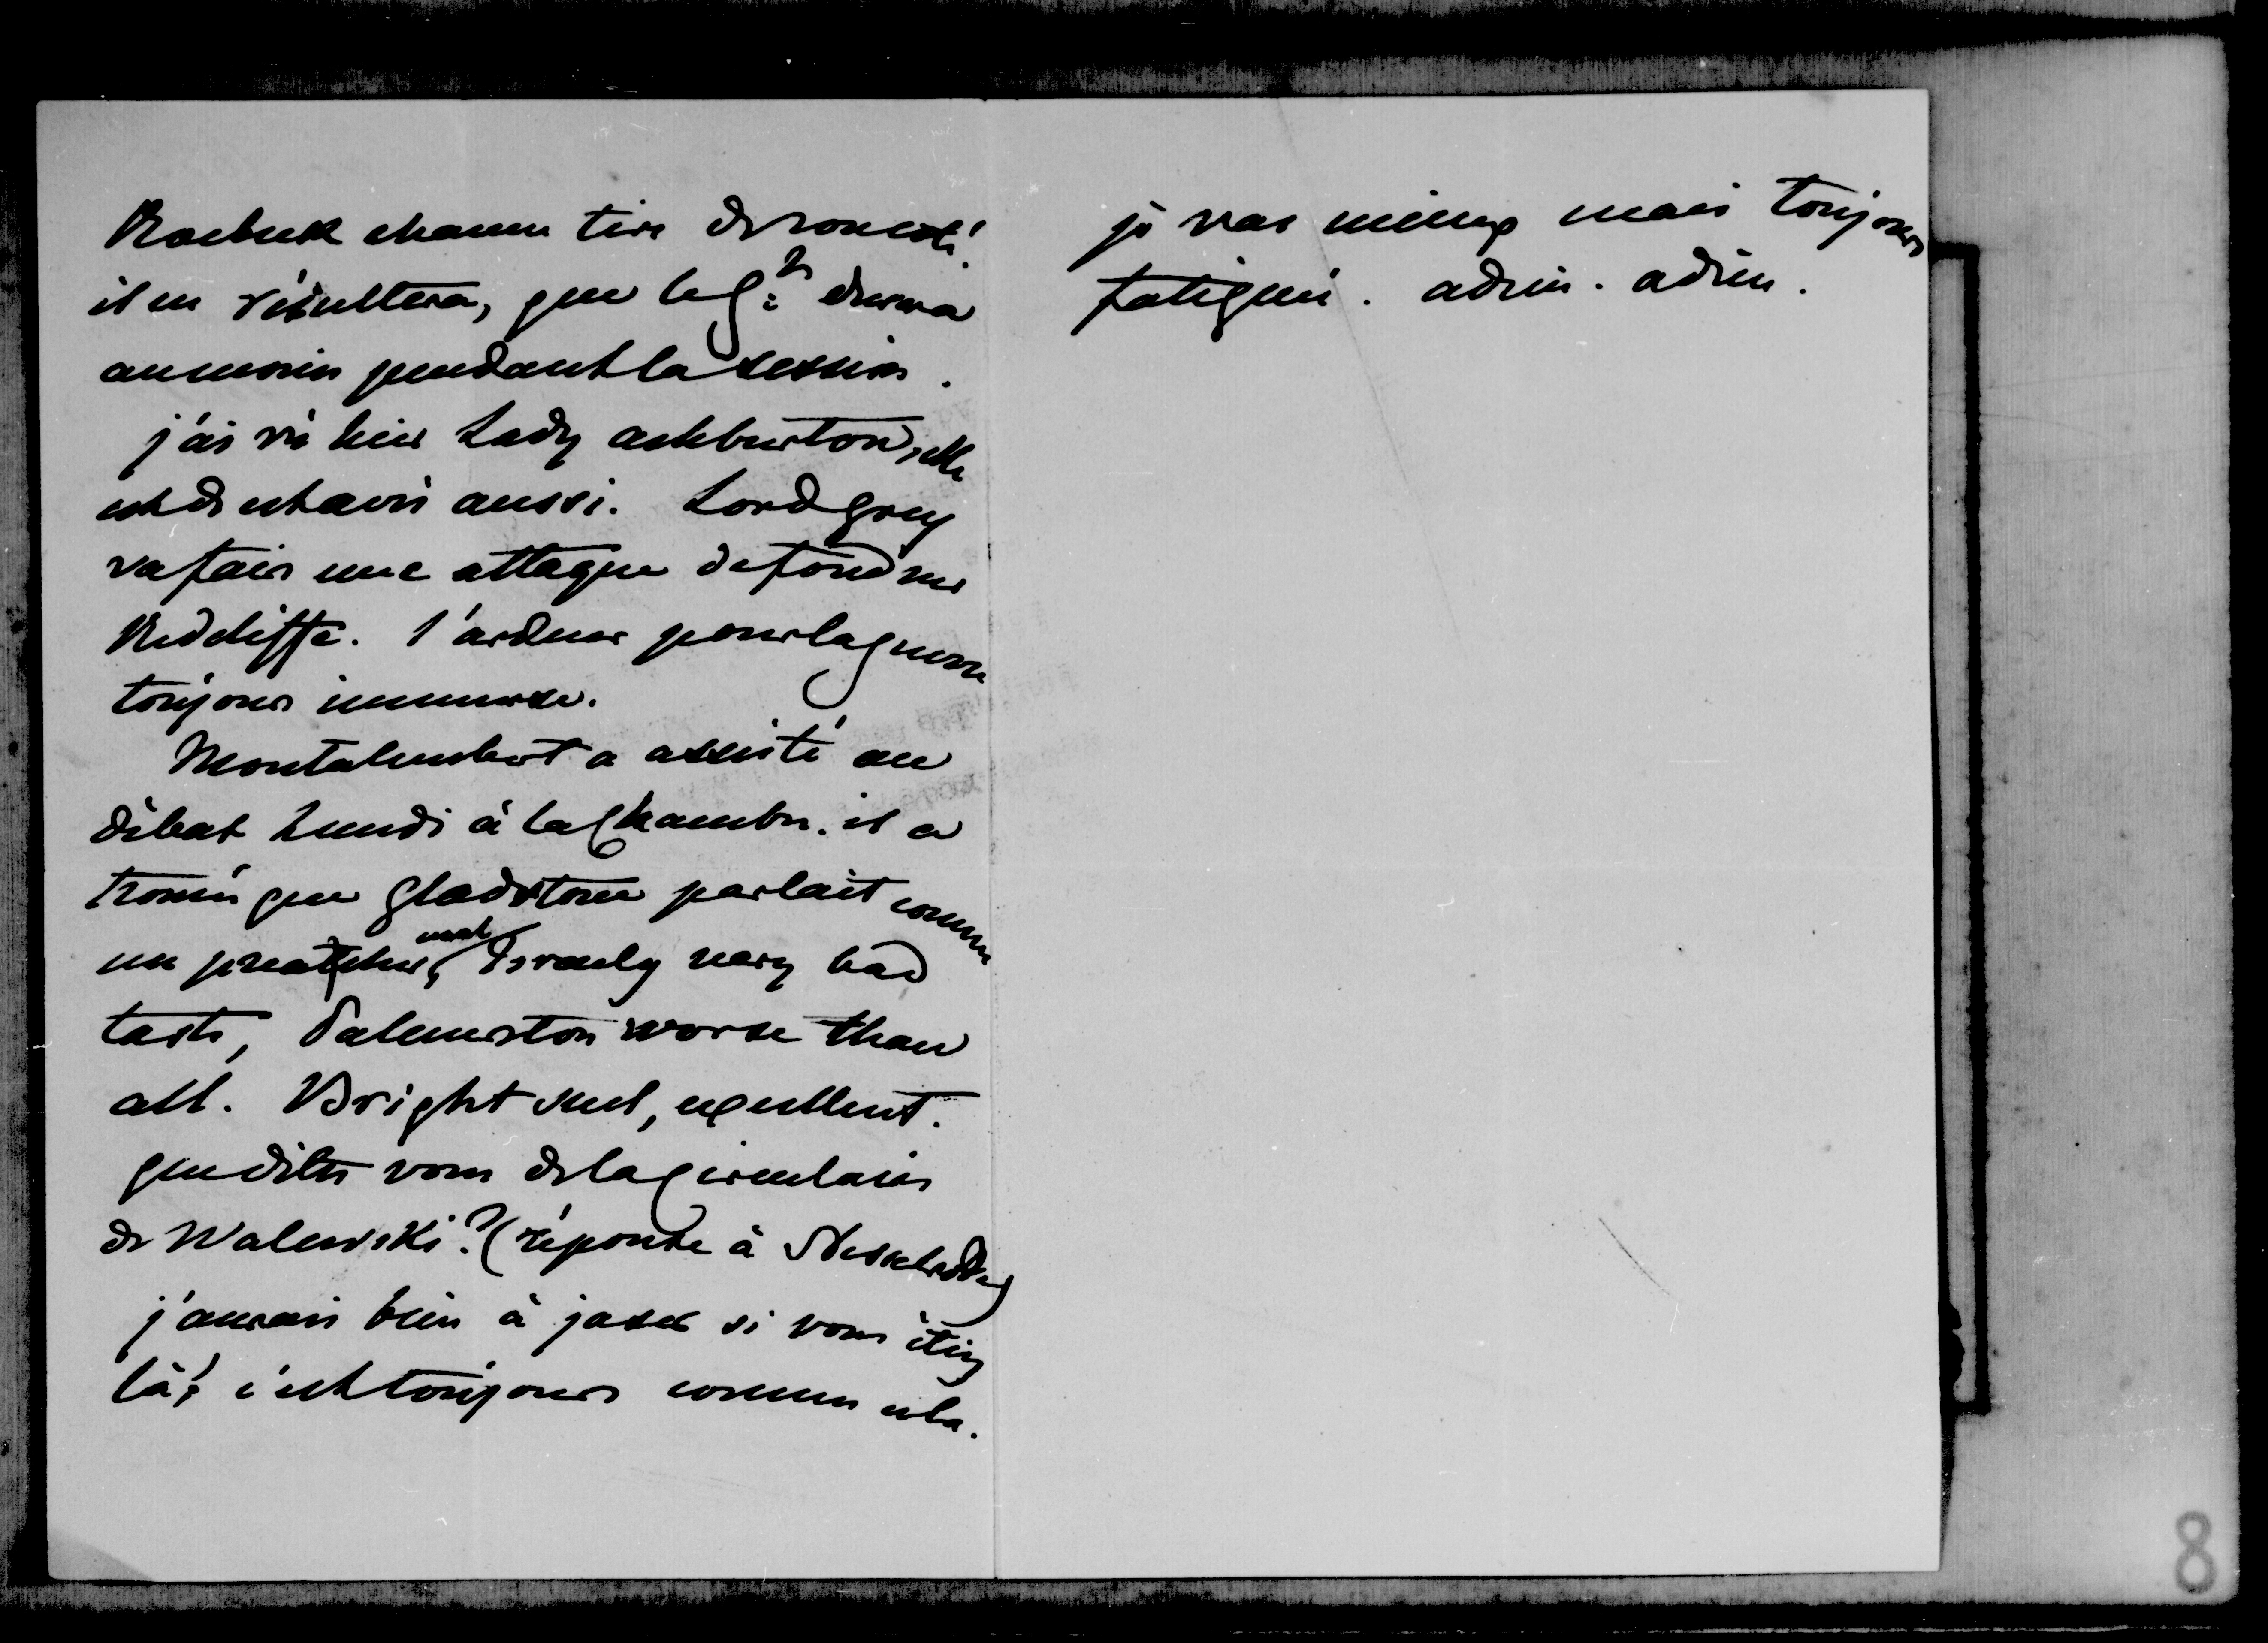 Roebuck chacun tire de son coté.
il en résultera, que le g: durera
au moins pendant la session.
j'ai vu hier Lady Ashburton, elle
est de cet avis aussi. Lord Grey
va faire une attaque de fond sur
Redcliffe. l'ardeur pour la guerre
toujours immense.
Montalembert a assisté au
débat Lundi à la Chambre. il a
trouvé que Gladstone parlait comme
un preatcher, Israely very bad
taste, Palmerston worse than
all. Bright seul, excellent.
que dites vous de la circulaire
de Walewski? (réponse à Nesselrode)
j'aurais bien à jaser si vous étiez
là! c'est toujours comme cela.
je vas mieux mais toujours
fatiguée. adieu. adieu.
8